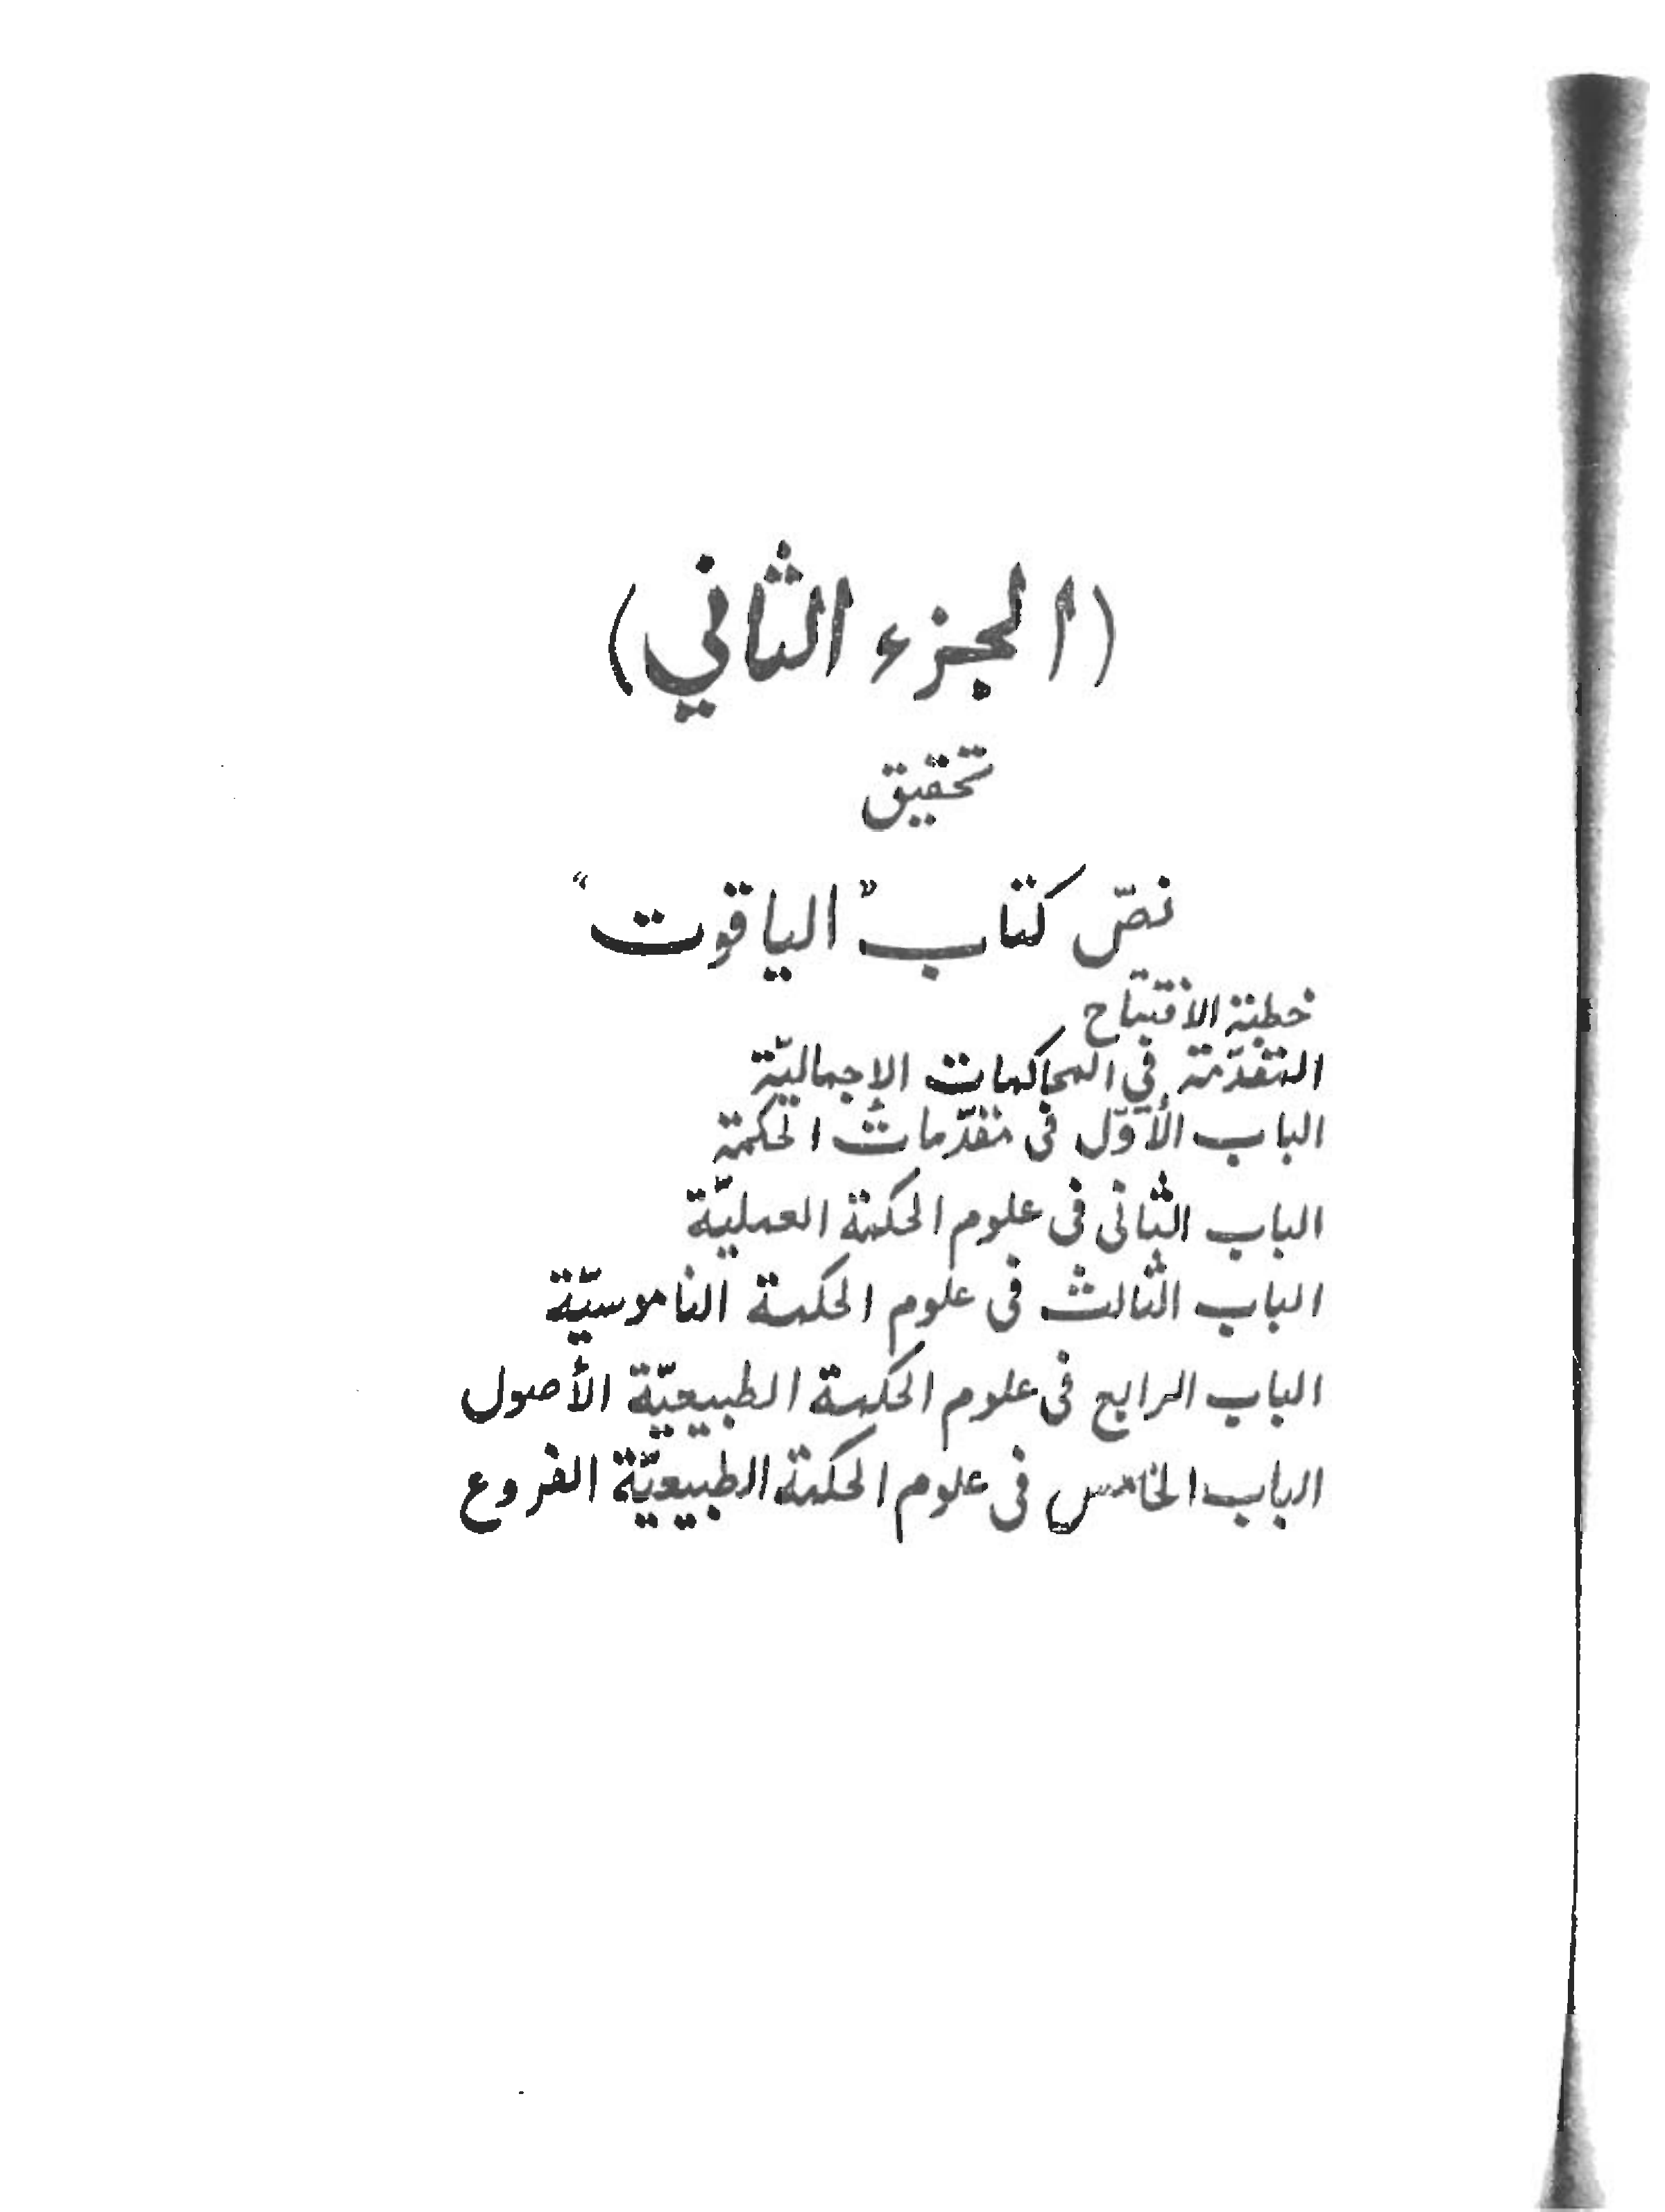 (الجزء الثاني)
تحقيق
نصّ كتاب "الياقوت"
خطبة الافتتاح
التقدّمة في المحاكمات الإجماليّة
الباب الأوّل فى مقدّمات الحكمة
الباب الثانى فى علوم الحكمة العمليّة
الباب الثالث فى علوم الحكمة الناموسيّة
الباب الرابع فى علوم الحكمة الطبيعيّة الأصول
الباب الخامس فى علوم الحكمة الطبيعيّة الفروع